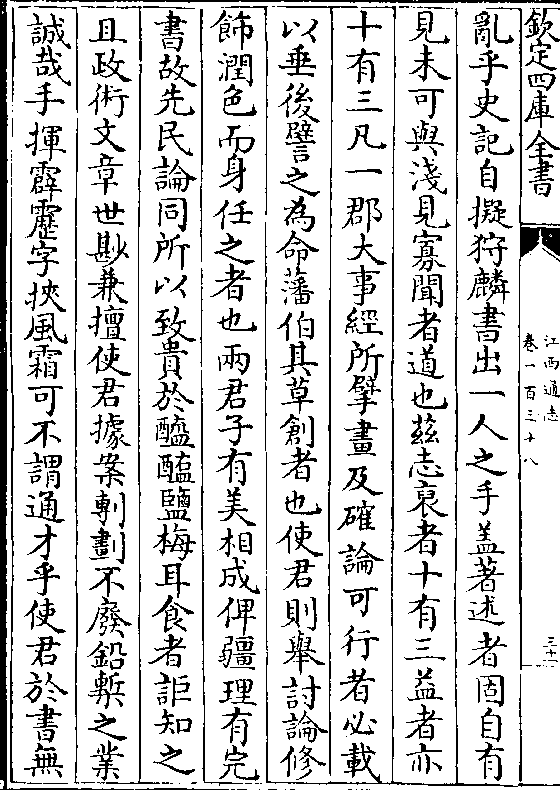 欽定四庫全書
江西通志
卷一百三十八
三十
亂乎史記自擬狩麟書出一人之手蓋著述者固自有
見未可與淺見寡聞者道也茲志裒者十有三益者亦
十有三凡一郡大事經所擘畫及確論可行者必載
以垂後譬之為命藩伯其草創者也使君則舉討論修
飾潤色而身任之者也兩君子有美相成俾疆理有完
書故先民論同所以致貴於醯醢鹽梅耳食者詎知之
且政術文章世尠兼擅使君據案剸劃不廢鉛槧之業
誠哉手揮霹靂字挾風霜可不謂通才乎使君於書無